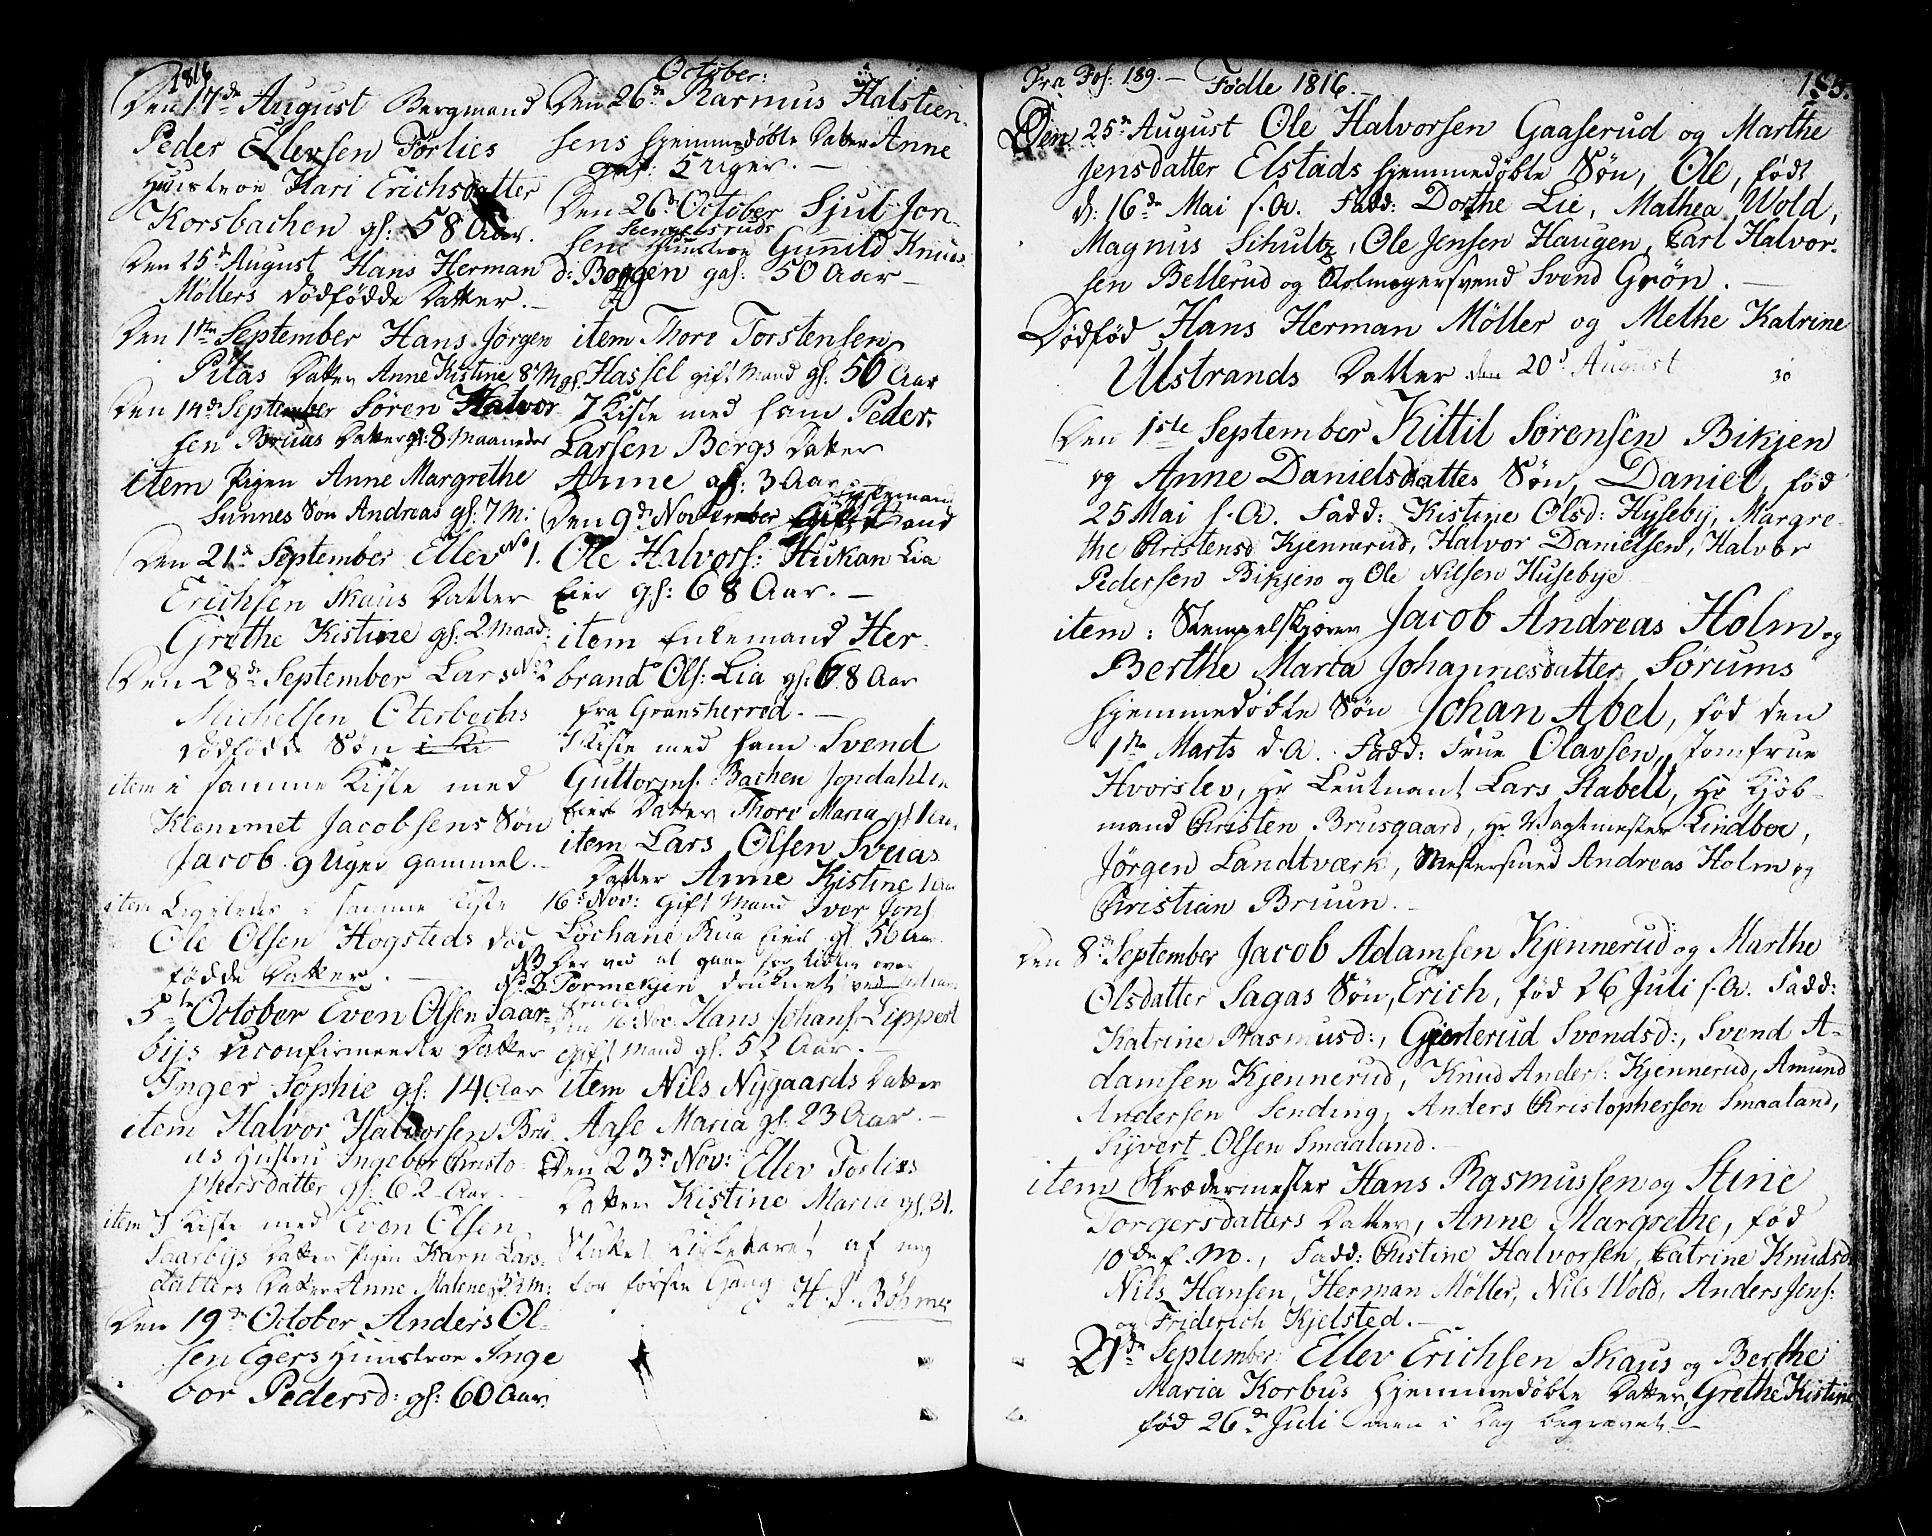 1816
Den 17de August Bergmand
Peder Ellevsen Forlies
Huustroe Kari Erichsdatter
Korsbachen gs: 58 Aar.
Den 25d August Hans Herman
Möllers dödfödde Datter.
Den 1ste September Hans Jörgen
Pilas Datter Anne Kistine 8 M gs.
Den 14d September Sören Halvor-
sen Bruas Datter gs: 8 Maaneder
item Pigen Anne Margrethe
Sunnes Sön Andreas gs: 7 M:
Den 21d September Ellev No 1.
Erichsen Skaus Datter
Grethe Kistine gs: 2 Maad:
Den 28d September Lars No 2
Michelsen Oterbechs
dödfödde Sön
item i samme Kiste med
Klemmet Jacobsens Sön
Jacob 9 Uger gammel.
item Ligeledes i samme Kiste
Ole Olsen Hogsteds död-
födde Datter.
5te October Even Olsen Saar-
byes uconfirmerede Datter
Inger Sophie gs: 14 Aar
item Halvor Halvorsen Bru-
as Hustru Ingebor Christo-
phersdatter gs: 62 Aar
item I Kiste med Even Olsen
Saarbys Datter Pigen Karn Lars-
datters Datter Anne Malene gs 3½ M:
Den 19de October Anders Ol-
sen Egers Huustroe Inge
bor Pedersd: gs: 60 Aar.
October:
Den 26de Rasmus Halstien-
sens hjemmedöbte Datter Anne
gs: 5 Uger.
Den 26d October Sjul Jon-
Stengelsruds
sens Huustroe Gunild Knuds
d: Boggen gs: 50 Aar
item Thore Torstensen
Hassel gift Mand gs: 56 Aar
I Kiste med ham Peder
Larsen Bergs Datter
Anne gs: 3 Aar
Den 9d November
Ole Halvors: Hukan Lia
Eier gs: 68 Aar.
item Enkemand Her-
brand Ols: Lia gs: 68 Aar
fra Gransherred.
I Kiste med ham Svend
Guttorms: Bachen Jondahlen
Eiers Datter Thore Maria gs 1 Aar
item Lars Olsen Svuas
Datter Anne Kistine 1 Aar
16d Nov: Gift Mand Iver Jons
Lochane Rua Eier gs 56 Aar
NB Der ved at gaae for tidlig over
No 3 Tormekjen druknet ved
Den 16 Nov: Hans Johans: Lippert
gift Mand gs. 52 Aar.
item Nils Nygaards Datter
Aase Maria gs: 23 Aar.
Den 23d Nov: Ellev Forlies
Datter Kistine Maria gs. 31.
Sluttet Kirkekaret af mig
for förste Gang H. J. Böhmer
Fra Fol: 189. Födte 1816. 195.
Den 25de August Ole Halvorsen Gaaserud og Marthe
Jensdatter Elstads hjemmedöbte Sön, Ole, födt
d: 16de Mai s. A. Fadd: Dorthe Lie, Mathea Wold,
Magnus Schultz, Ole Jensen Haugen, Carl Halvor-
sen Bellerud og Rolmagersvend Svend Grön.
Dödföd Hans Herman Möller og Methe Katrine
Ulstrands Datter den 20d August
30
Den 1ste September Kittil Sörensen Bikjen
og Anne Danielsdatters Sön, Daniel, föd
25 Mai s. A. Fadd: Kistine Olsd: Hyseby, Margre-
the Christensd Kjennerud, Halvor Danielsen, Halvor
Pedersen Bikjen og Ole Nilsen Husebye
item: Stempelskjærer Jacob Andreas Holm og
Berthe Maria Johannesdatter Sörums
hjemmedöbte Sön Johan Abel, föd den
1ste Marts d. A. Fadd: Frue Olavsen, Jomfrue
Hvorslev, Hr Leutnant Lars Stabell, Hr Kjöb-
mand Christen Brusgaard, Hr Vagtmester Lindboe,
Jörgen Landtværk, Mestersmed Andreas Holm og
Christian Bruun.
Den 8d September Jacob Adamsen Kjennerud og Marthe
Olsdatter Sagas Sön, Erich, föd 26 Juli s. A. Fadd:
Katrine Rasmusd:, Gjerterud Svendsd:, Svend A-
damsen Kjennerud, Knud Anders: Kjennerud, Amund
Andersen Sending, Anders Christophersen Smaaland,
Syvert Olsen Smaaland.
item Skrædermester Hans Rasmussen og Stine
Torgersdatters Datter, Anne Margrethe, föd
10de s. M., Fadd: Christine Halvorsen, Catrine Knudsd
Nils Hansen, Herman Möller, Nils Wold, Anders Jens:
og Friderich Kjelsted.
21de September Ellev Erichsen Skaus og Berthe
Maria Korbus hjemmedöbte Datter, Grethe Kistine
föd 26de Juli men i Dag begravet.